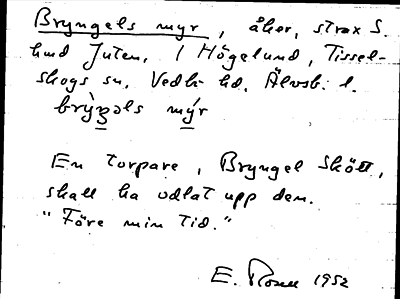 Bryngels myr, åker, strax S.
hmd Juten, i Högelund, Tissel-
skogs sn, Vedbo hd, Älvsb. l.
brỳŋəls mýr
En torpare, Bryngel Skött,
skall ha odlat upp den.
"Före min tid."
E. Rosell 1952